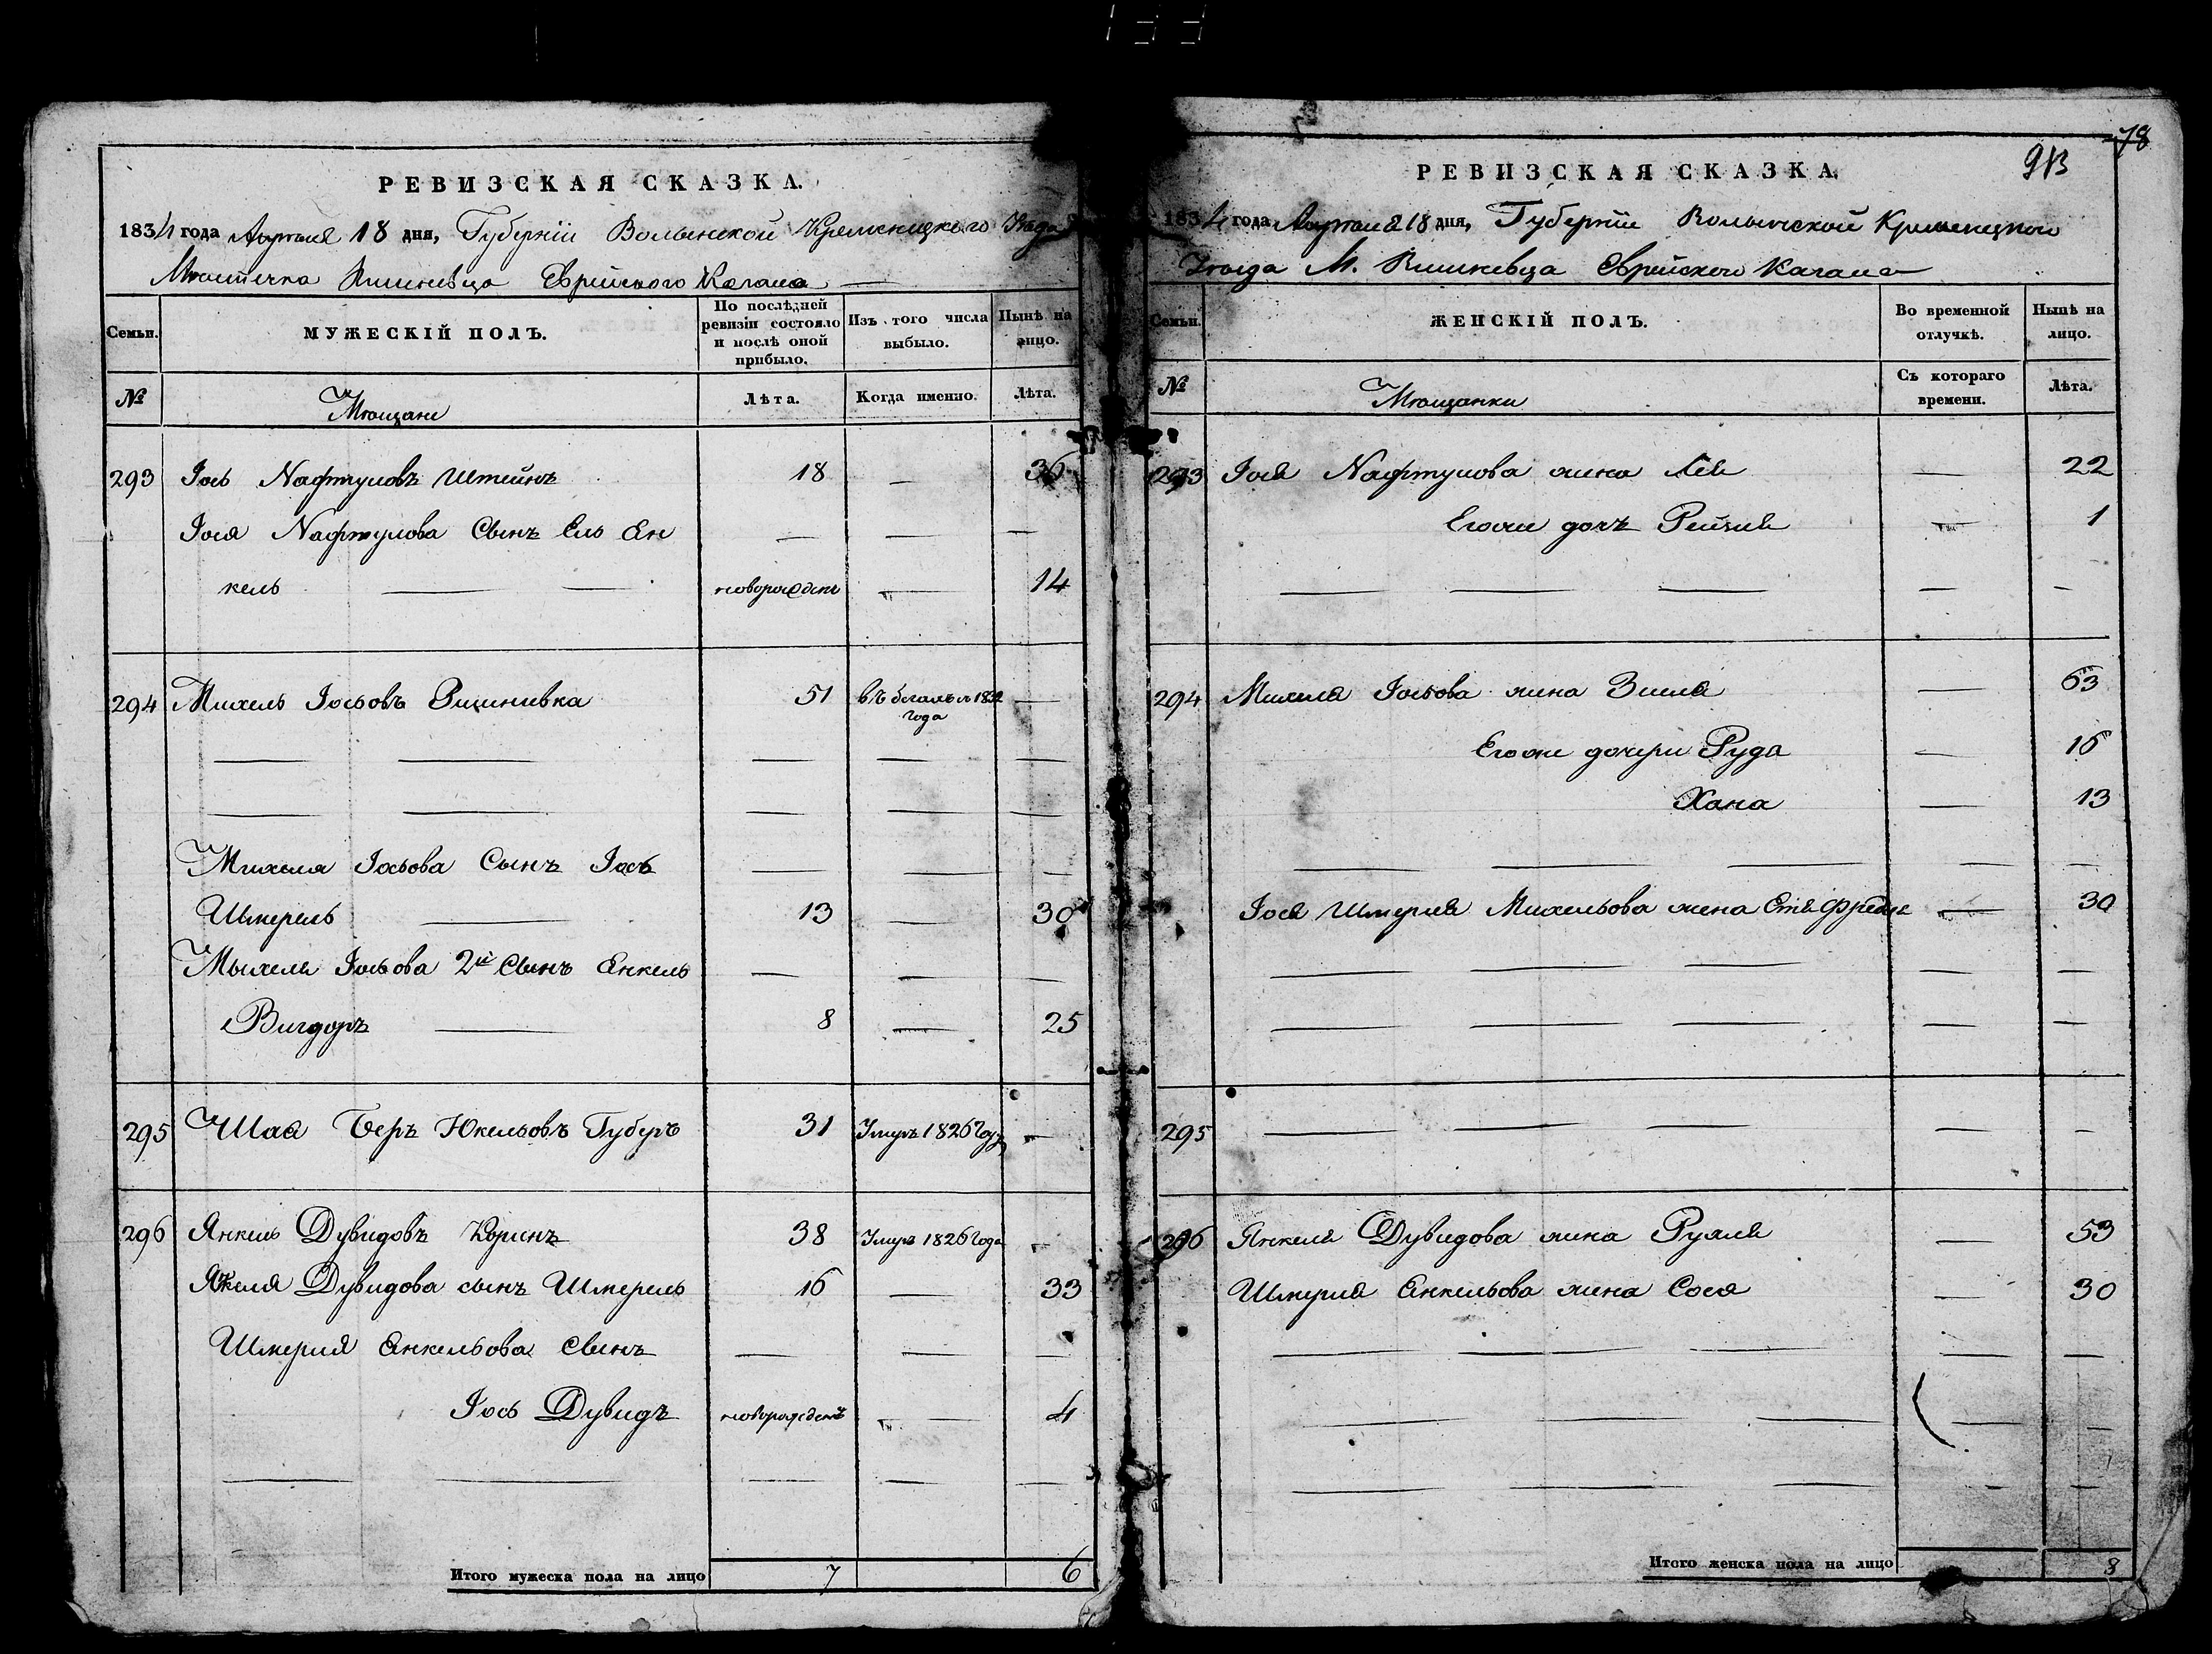 133
РЕВИЗСКАЯ СКАЗКА.
1834 года Апреля 18 дня, Губерніи Волынской Кременецкого Уезда
Местечка Вишневца Еврейского Кагала
Семьи.
МУЖЕСКІЙ ПОЛЪ.
По послѣдней ревизіи состояло и послѣ оной прибыло.
Изъ того числа выбыло.
Нынѣ на лицо.
№
Мещане
Лѣта.
Когда именно.
Лѣта.
293 Іось Нафтуловъ Штейнъ 18 — 36
Іося Нафтулова Сынъ Ель Ен — — —
кель — — новорожденъ — 14
294 Михель Іосьовъ 51 1832 года —
— — — — —
— — — — —
Михеля Іосьова Сынъ Іось — — —
Шмерель — 13 — 30
Мыхеля Іосьова 2й Сынъ Енкель — — —
Вигдоръ — 8 — 25
295 Шая Беръ Юкельовъ Губеръ 31 Умеръ 1826 Году —
296 Янкель Дувидовъ 38 Умеръ 1826 Года —
Янкеля Дувидова сынъ Шмерель 16 — 33
Шмериля Енкельова Сынъ — — —
Іось Дувидъ новорожденъ — 4
— — — — —
Итого мужеска пола на лицо 7 6
78
913
РЕВИЗСКАЯ СКАЗКА.
1834 года Апреля 18 дня, Губерніи Волынской Кременецкого
Уезда М. Вишневца Еврейского Кагала
Семьи.
ЖЕНСКІЙ ПОЛЪ.
Во временной отлучкѣ.
Нынѣ на лицо.
№
Мещанки
Съ котораго времени.
Лѣта.
293 Іося Нафтулова жена Лея — 22
Его же дочь Рейзля — 1
— — — — —
294 Михеля Іосьова жена Зисля — 53
Его же дочери Руда — 16
Хана — 13
— — — — —
Іося Шмериля Михельова жена — 30
— — — — —
— — — — —
295 — — — — —
296 Янкеля Дувидова жена Рухля — 53
Шмериля Енкельова жена Сося — 30
— — — — —
— — — — —
— — — — —
Итого женска пола на лицо 8